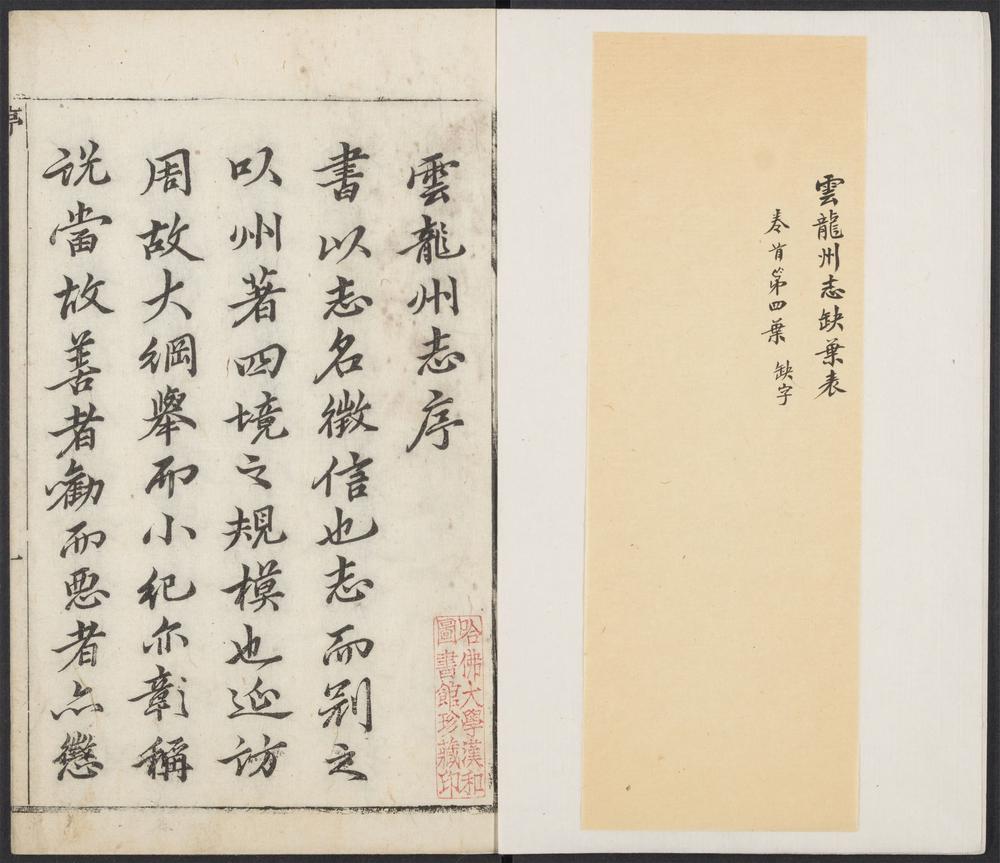 雲龍州志缺葉表
卷首第四葉 缺字
雲龍州志序
書以志名徵信也志而别之
以州著四境之規模也延訪
周故大綱舉而小紀亦彰稱
説當故善者勸而惡者亦懲
哈佛大學漢和
圖書館珍藏印
序
一